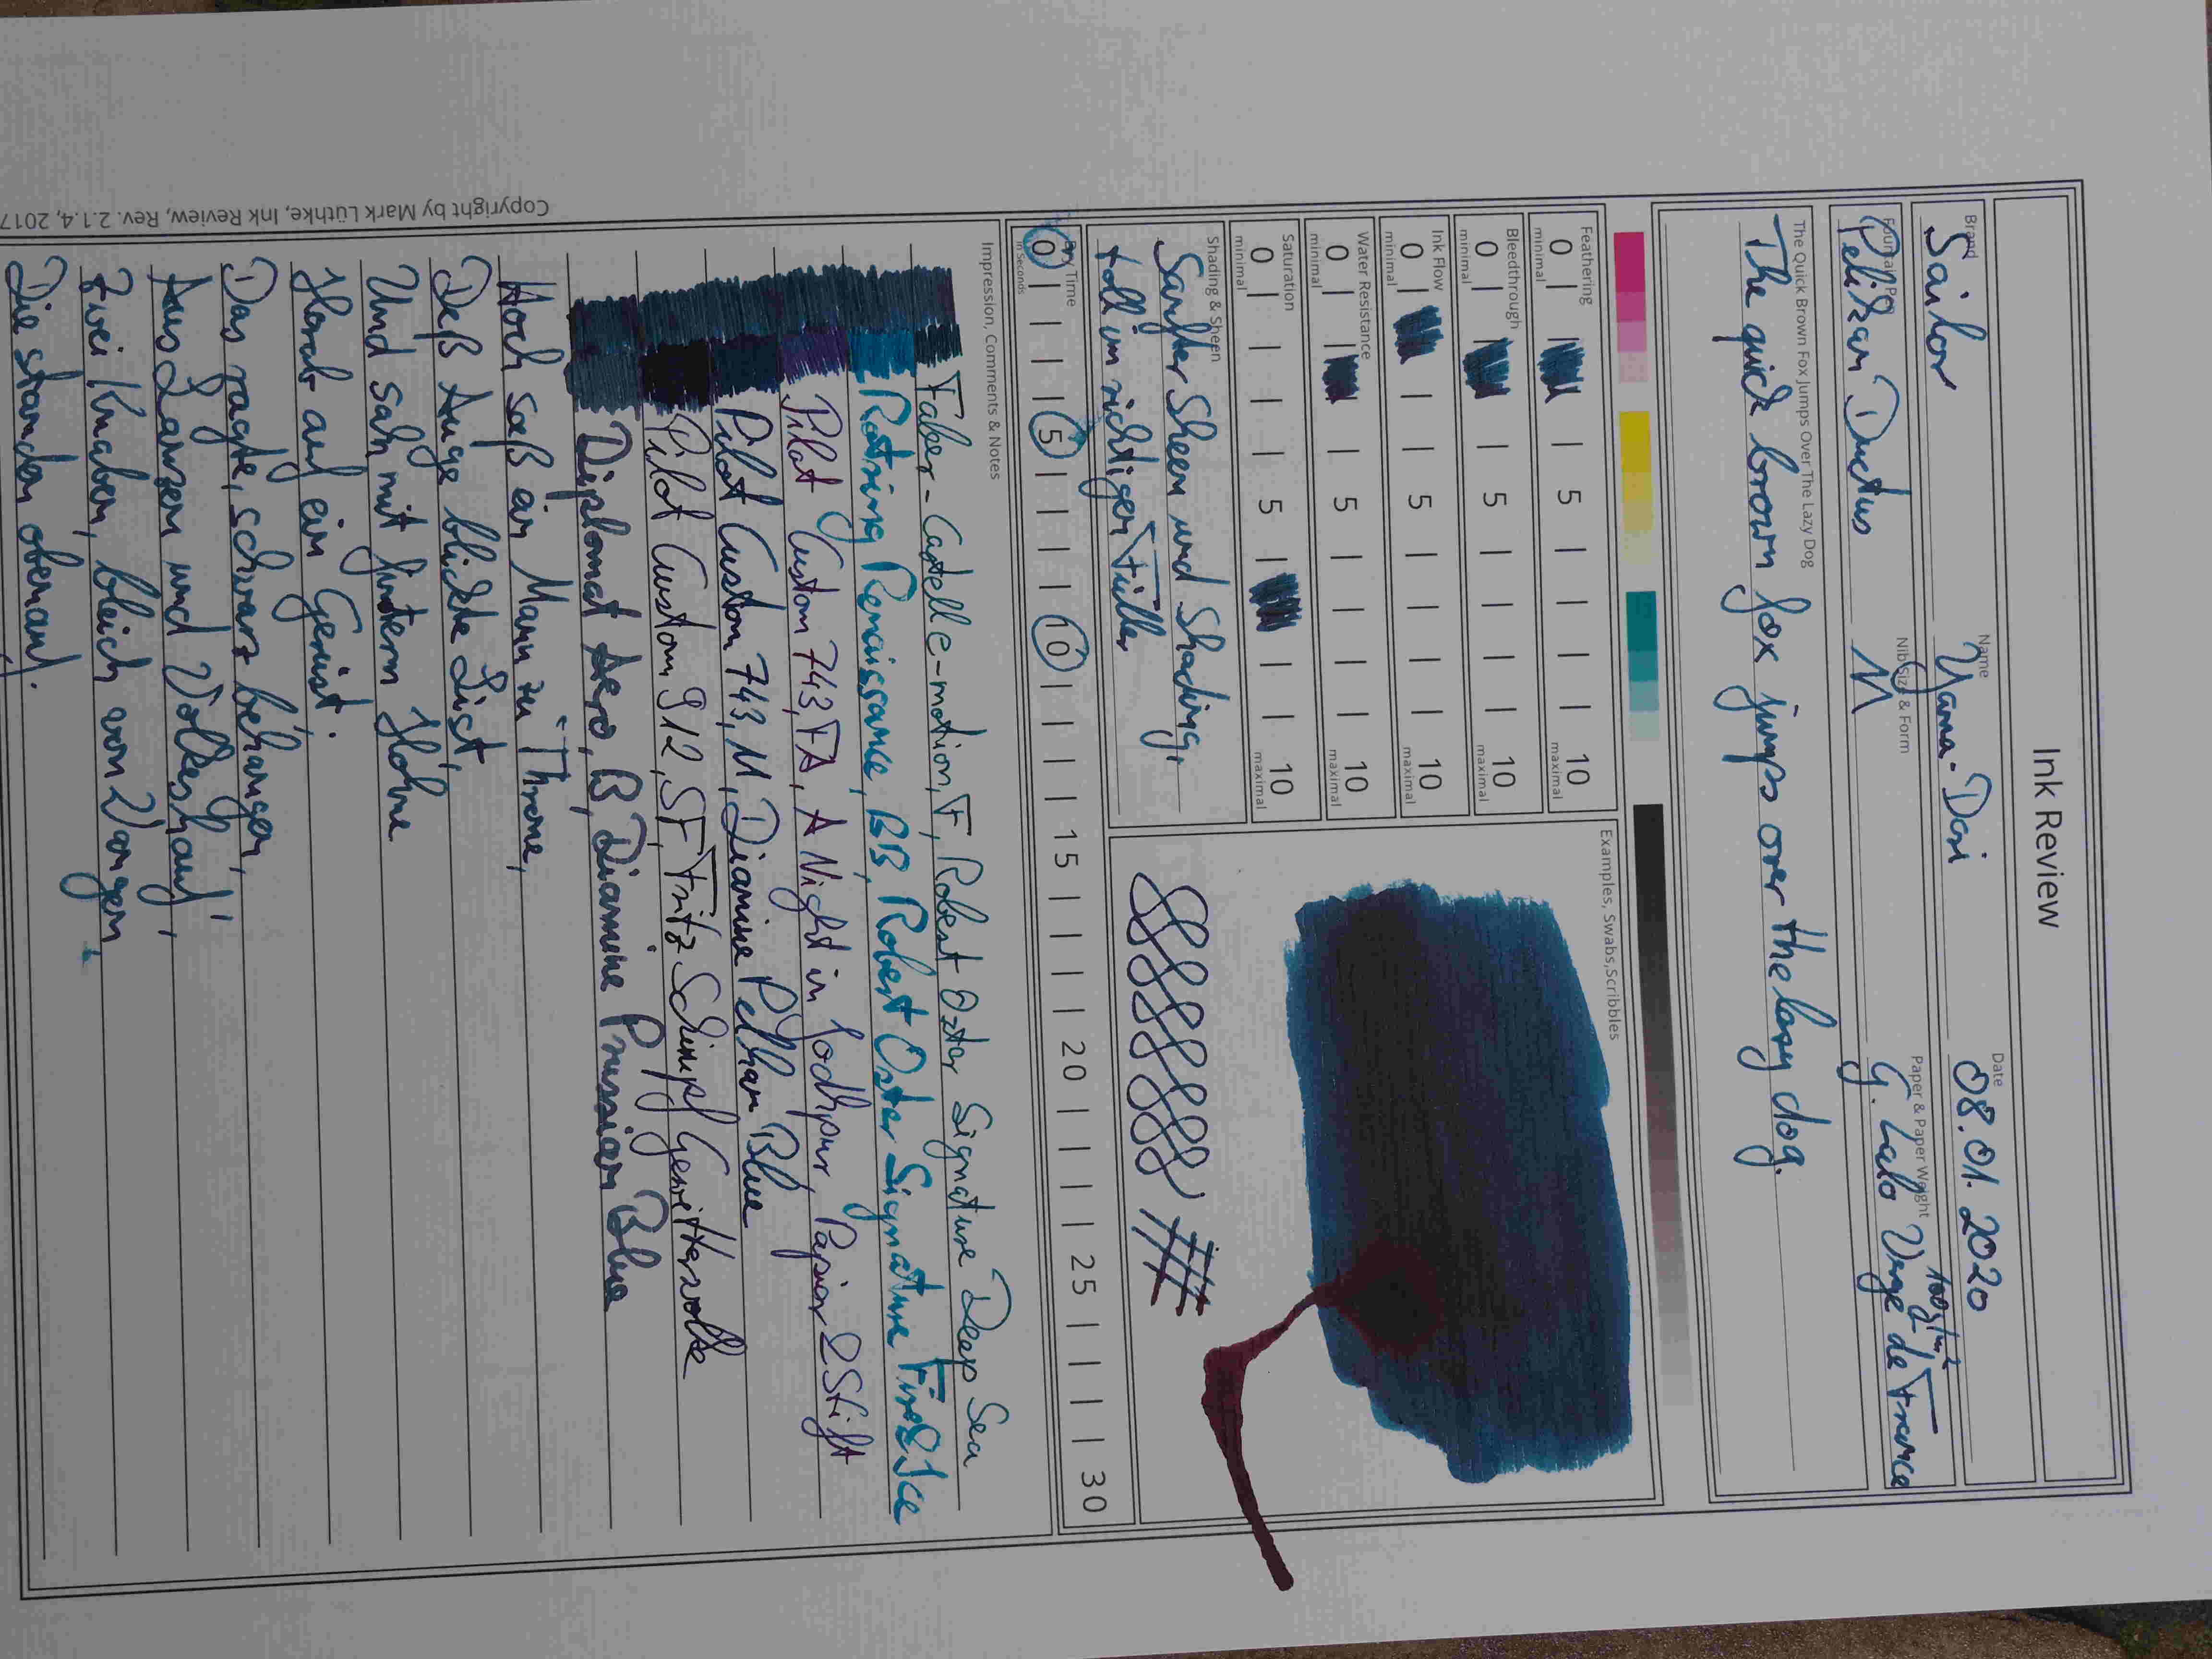 Ink Review
Brand Name Date
Sailor Yama-Dori 08.01.2020
Fountain Pen Nib Size & Form Paper & Paper Weight
100g/m²
Pelikan Ductus M G. Lalo Verge de France
The Quick Brown Fox Jumps Over The Lazy Dog
The quick brown fox jumps over the lazy dog.
Feathering
0 5 10
minimal maximal
Bleedthrough
0 5 10
minimal maximal
Ink Flow
0 5 10
minimal maximal
Water Resistance
0 5 10
minimal maximal
Saturation
0 5 10
minimal maximal
Shading & Sheen
Sanfter Sheen und Shading,
toll im richtigen Füller
Examples, Swabs,Scribbles
Dry Time
in Seconds
0 5 10 15 20 25 30
Impression, Comments & Notes
Faber-Castell e-motion, F, Robert Oster Signature Deep Sea
Rotring Renaissance, BB, Robert Oster Signature Fire & Ice
Pilot Custom 743, FA, A Night in Jodhpur, Papier & Stift
Pilot Custom 743, M, Diamine Pelham Blue
Pilot Custom 912, SF, Fritz Schimpf Gewitterwolke
Diplomat Aero, B, Diamine Prussian Blue
Hoch saß ein Mann zu Throne,
Deß Auge blickte Lüst,
Und sah mit finsterm Hohne
Herab auf ein Gerüst;
Das ragte, schwarz behangen,
Aus Lanzen und Volkeshauf,
Zwei Knaben, bleich von Wangen,
Die standen obenauf.
Copyright by Mark Lüthke, Ink Review, Rev. 2.1.4, 2017